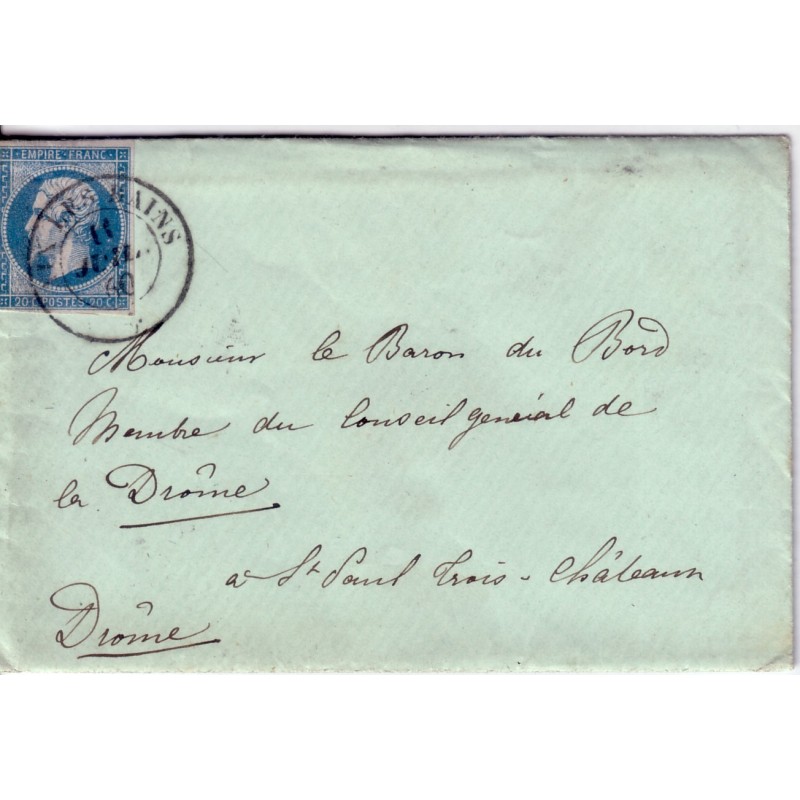 EMPIRE · FRANC ·
20 C POSTES 20 C
LES BAINS
11
JUIL.
60
Monsieur le Baron du Bord
Membre du Conseil général de
la Drôme
à St Paul Trois-Châteaux
Drôme